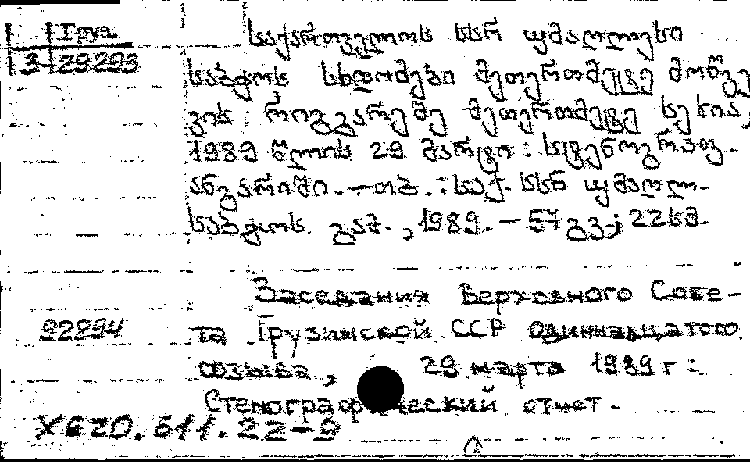 Груз
3 29293
საქართველოს სსრ უმაღლესი
საბჭოს სხდომები მეთერთმეტე მოწვე-
ვის რიგგარეშე მეთერთმეტე სესია,
1989 წლის 29 მარტი : სტენოგრაფ.
ანგარიში. — თბ. : საქ. სსრ უმაღლ.
საბჭოს გამ., 1989. — 57 გვ.; 22 სმ.
Заседания Верховного Сове-
92294 та Грузинской ССР одиннадцатого
созыва, 29 марта 1989 г :
Стенографический отчет.
Х620.511.22-9